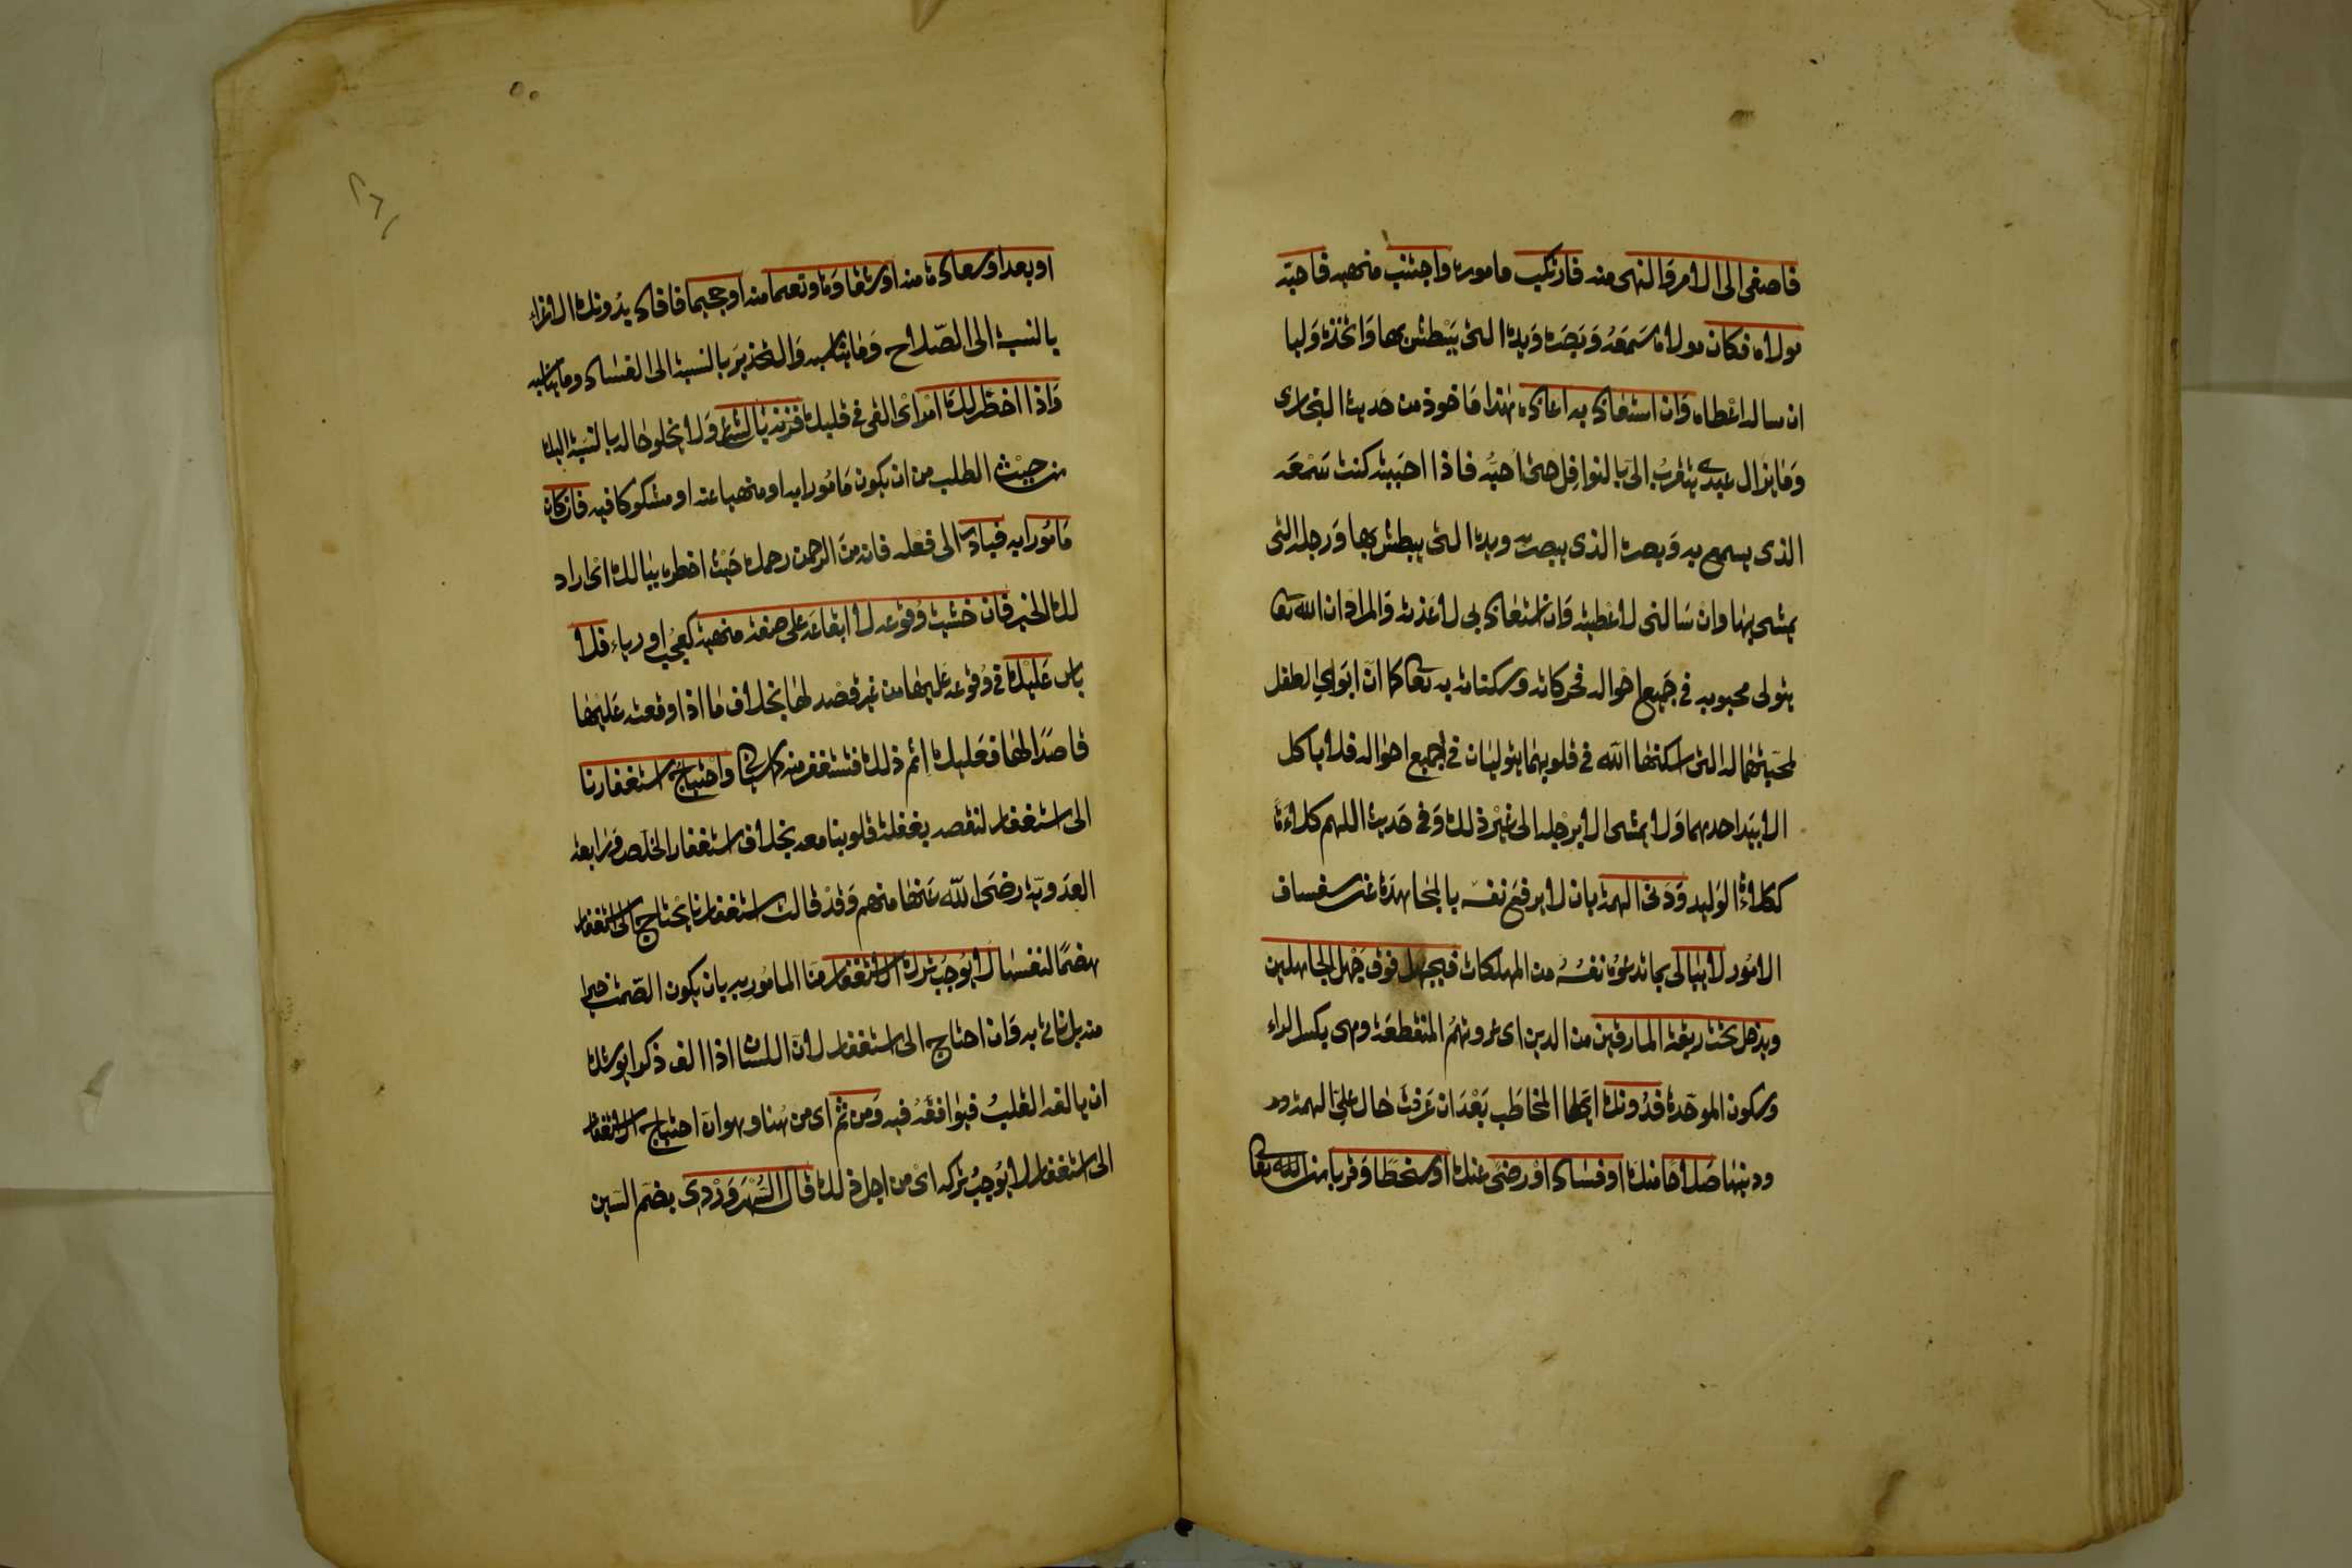 فاصغى الى الامر والنهى منه فارتكب ماموره واجتنب منهيه فاحبه
مولاه فكان مولاه سَمعَهُ وَبَصَرَه وَيدهُ التى يَبْطش بها وَاتخذهُ وَليا
ان ساله اعْطاه وَان استعاذ به اعاذه هٰذا مَاخوذ من حَديث البخارى
وَمَا يزال عبدى يتقربُ الىّ بالنوافِل حتى احبّه فاذا احببته كنت سَمْعَه
الذى يسمع به وَبصره الذى يبصر به ويده التى يبطش بها وَرجله التى
يمشى بها وانْ سَالنى لاعْطيته وَان استعاذ بى لاعَذته وَالمراد ان الله تعا
يتولى محبوبه فى جَميع احْوالِه فحركاته وسكناته به تعا كما انّ ابوَاىِ الطفل
لمحبّتهما له التى اسكنها الله فى قلوبهما يتوليان فى جميع احوٰاله فلا ياكل
الا بيَد احدهما وَلا يمشى الا برْجله الى غيْر ذلك وَفى حَديث اللهم كلاءَة
ككلاءَةِ الوَليد وَدنى الهمة بان لا يرفعَ نفسَه بالمجاهَدَة عن سفساف
الامُور لا يبالى بما تدعُوهُ نفسُهُ من المهلكات فيجهل فوق جَهْل الجاهلين
ويدخل تحت ربقة المارقين من الدين اى عروتهمُ المنقطعَة وهى بكسر الراء
وسكون الموحّدة فدُونك ايّها المخاطَب بَعْدَ ان عَرفتَ حَال علىّ الهمة ود
ودنيّها صَلاحًا منك اوْ فسَادًا اوْ رضًى عنك اوْ سخطًا وَقربا من الله تعا
او بعدا وسعادَة منه اوْ شقاوَة وَنعيما منه اوْ جحيما فافاد بدُونك الاغراء
بالنسبة الى الصّلاح وَمَا يناسبه وَالتحذيرَ بالنسبة الى الفسَاد وما يناسبه
وَاذا اخطر لك امْر اىْ القى فى قلبك فزنه بالشرع وَلا يخلو حَاله بالنسبَة اليك
من حيْث الطلب من ان يكون مَامُورا به او منهيا عنه او مشكوكا فيه فان كان
مَامُورا به فبادرْ الى فعْله فانه منَ الرحمن رحمك حَيْث اخطره ببالك اىْ اراد
لك الخير فان خشيت وُقوْعه لا ايقاعَه على صفة منهية كعُجْب اورياء فلا
باس عَليْك فى وُقوعه عَليْها من غير قصْد لها بخلاف مَا اذا اوقعته عَليْهَا
قاصدًا لها فعَليك اثم ذلك فتستغفر منه كما سيَاتى وَاحْتيَاج استغفارنا
الى استغفار لنقصه بغفلة قلوبنا معه بخلاف استغفار الخلص وَرابعة
العدَويّة رضىَ الله عَنهَا منهم وَقدْ قالت استغفارنا يحْتاج الى استغفار
هضمًا لنفسها لا يوُجب ترك الاستغفار منا المامُور به بان يكون الصّمت خيرا
منه بل ناتى به وَان احتاج الى استغفار لانّ اللسان اذا الف ذكرا يوشك
ان يالفه القلبُ فيوَافقهُ فيه وَمن ثمّ اى من هنا وهو ان احتياج الاستغفار
الى استغفار لا يوُجبُ تركه اىْ من اجل ذلك قال السُّهْرَوَرْدىّ بضم السّين